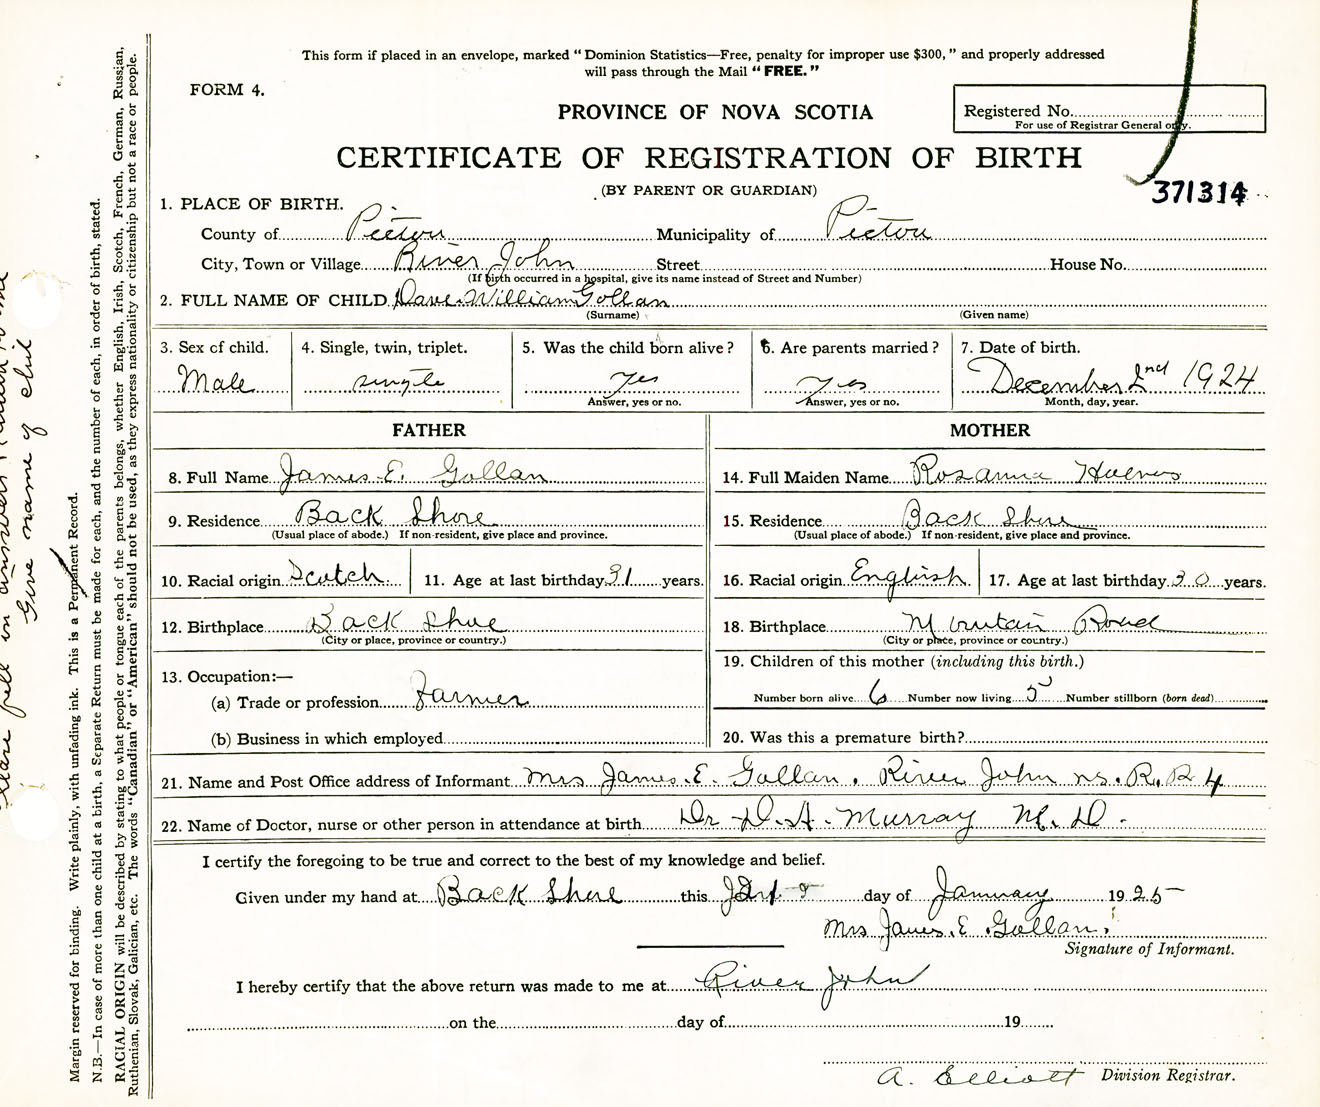 This form if placed in an envelope, marked "Dominion Statistics—Free, penalty for improper use $300," and properly addressed
will pass through the Mail "FREE."
FORM 4.
PROVINCE OF NOVA SCOTIA
Registered No.
For use of Registrar General only.
CERTIFICATE OF REGISTRATION OF BIRTH
(BY PARENT OR GUARDIAN)
371314
1. PLACE OF BIRTH.
County of Pictou Municipality of Pictou
City, Town or Village River John Street House No.
(If birth occurred in a hospital, give its name instead of Street and Number)
2. FULL NAME OF CHILD Dave William Gollan
(Surname) (Given name)
3. Sex of child. 4. Single, twin, triplet. 5. Was the child born alive? 6. Are parents married? 7. Date of birth.
Male single yes yes December 2nd 1924
Answer, yes or no. Answer, yes or no. Month, day, year.
FATHER MOTHER
8. Full Name James E. Gollan 14. Full Maiden Name Rosanna
9. Residence Back Shore 15. Residence Back Shore
(Usual place of abode.) If non-resident, give place and province. (Usual place of abode.) If non-resident, give place and province.
10. Racial origin Scotch 11. Age at last birthday 31 years. 16. Racial origin English 17. Age at last birthday 30 years.
12. Birthplace Back Shore 18. Birthplace Mountain Road
(City or place, province or country.) (City or place, province or country.)
13. Occupation:— 19. Children of this mother (including this birth.)
(a) Trade or profession Farmer Number born alive 6 Number now living 5 Number stillborn (born dead)
(b) Business in which employed 20. Was this a premature birth?
21. Name and Post Office address of Informant Mrs James. E. Gollan. River John ns. R.R 4
22. Name of Doctor, nurse or other person in attendance at birth Dr D. A. Murray M. D.
I certify the foregoing to be true and correct to the best of my knowledge and belief.
Given under my hand at Back Shore this day of January 1925
Mrs James. E. Gollan.
Signature of Informant.
I hereby certify that the above return was made to me at River John
on the day of 19
A. Elliott Division Registrar.
Margin reserved for binding. Write plainly, with unfading ink. This is a Permanent Record.
N.B.—In case of more than one child at a birth, a Separate Return must be made for each, and the number of each, in order of birth, stated.
RACIAL ORIGIN will be described by stating to what people or tongue each of the parents belongs, whether English, Irish, Scotch, French, German, Russian,
Ruthenian, Slovak, Galician, etc. The words "Canadian" or "American" should not be used, as they express nationality or citizenship but not a race or people.
fill in answers
Give name of child